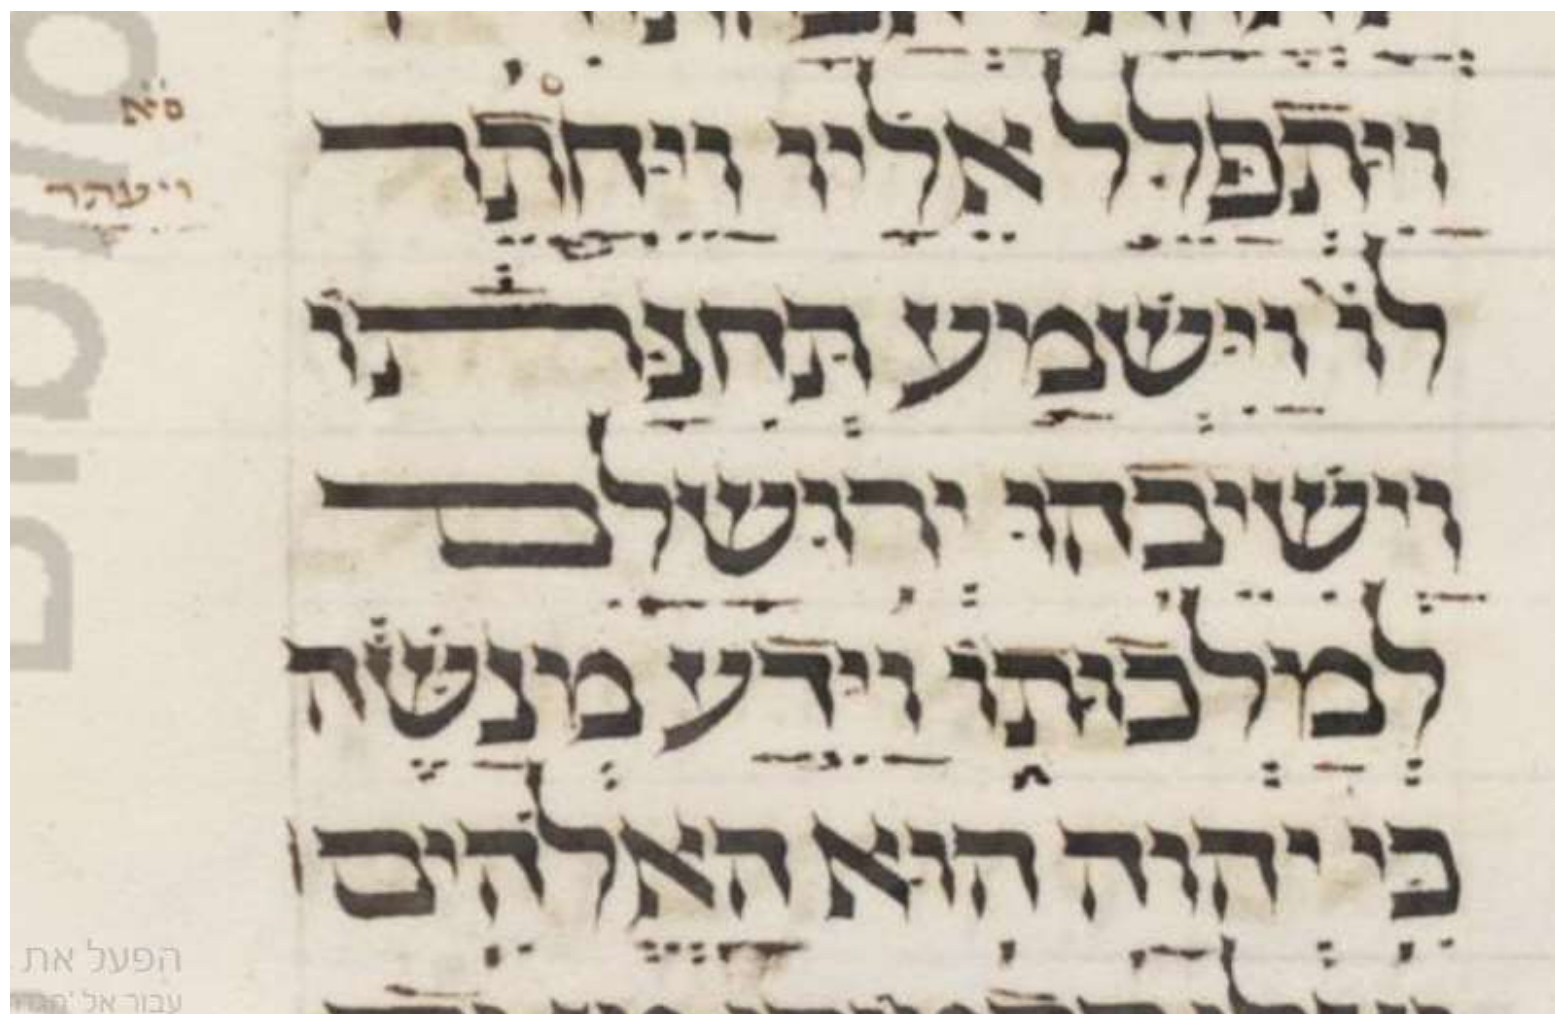 וַיִּתְפַּלֵּל אֵלָיו וַיֵּחָתֶר
ס״א
ויעתר
לוֹ וַיִּשְׁמַע תְּחִנָּתוֹ
וַיְשִׁיבֵהוּ יְרוּשָׁלַם
לְמַלְכוּתוֹ וַיֵּדַע מְנַשֶּׁה
כִּי יְהוָה הוּא הָאֱלֹהִים
הפעל את
עבור אל